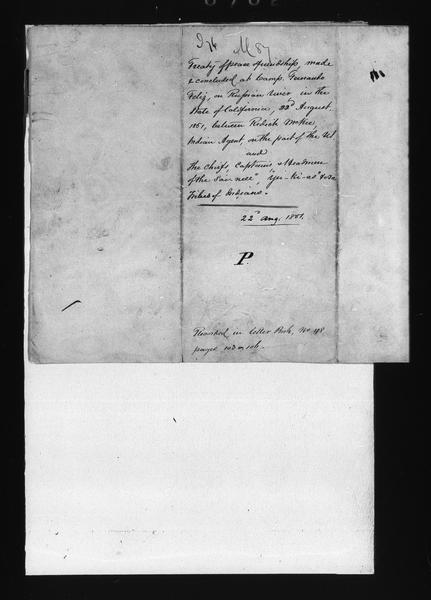 Treaty of peace & friendship, made
& concluded at Camp Fernando
Feliz, on Russian river in the
State of California, 22d August
1851, between Redick McKee
Indian Agent, on the part of the US
and
the chiefs, captains & Headmen
of the Sai-nell, Yu-ki-as &c &c
Tribes of Indians.
22d Aug. 1851.
P.
Recorded in Letter Book, No 48
pages 103 to 106.